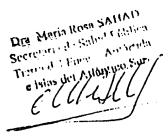 Dra. María Rosa SAHAD
Secretaria de Salud Pública
Tierra del Fuego Antártida
e Islas del Atlántico Sur